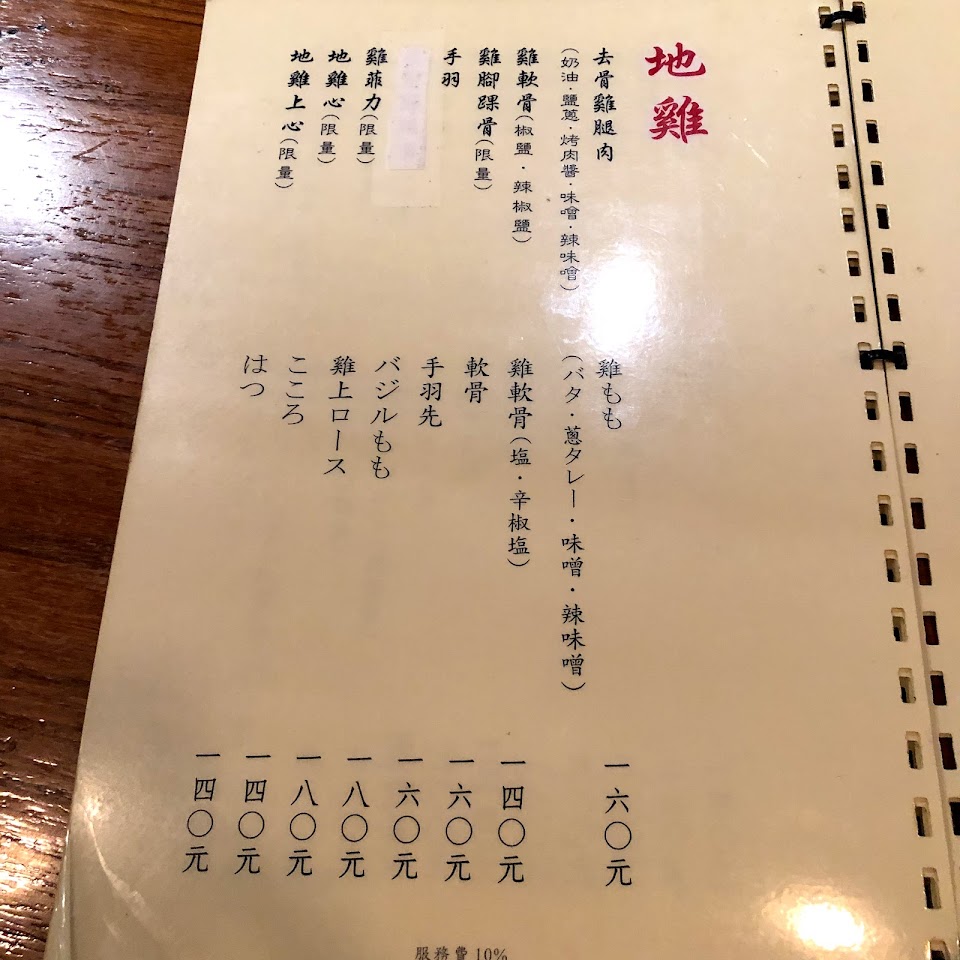 地雞
去骨雞腿肉
(奶油·鹽蔥·烤肉醬·味噌·辣味噌)
雞軟骨(椒鹽·辣椒鹽)
雞腳踝骨(限量)
手羽
雞菲力(限量)
地雞心(限量)
地雞上心(限量)
雞もも
(バタ·蔥タレー·味噌·辣味噌)
雞軟骨(塩·辛椒塩)
軟骨
手羽先
バジルもも
雞上ロース
こころ
はつ
一六〇元
一四〇元
一六〇元
一六〇元
一八〇元
一八〇元
一四〇元
一四〇元
服務費10%